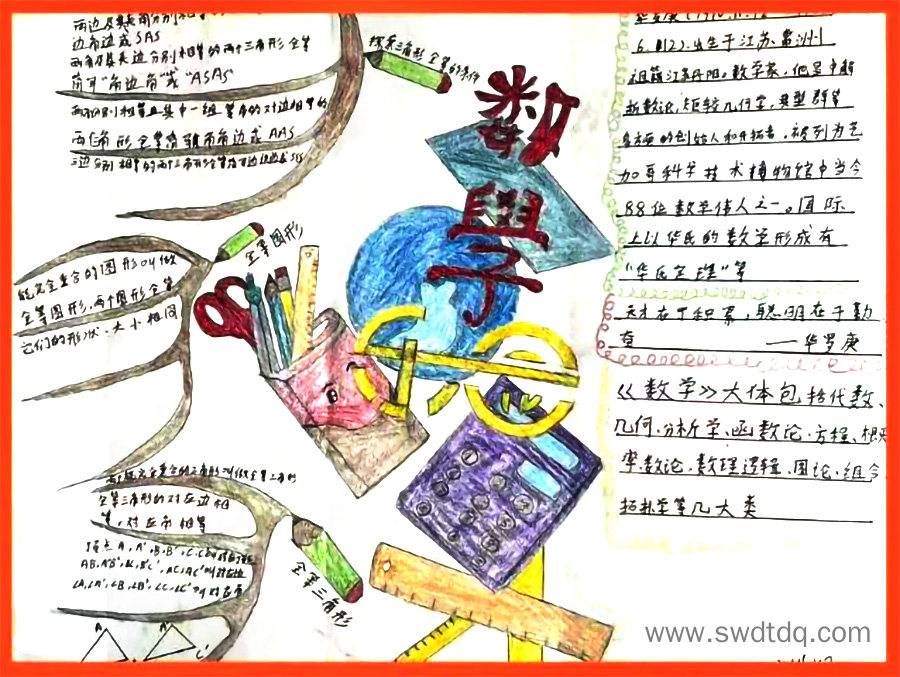 两边及其夹角分别相等的
边角边或SAS
两角及其夹边分别相等的两个三角形全等
简写"角边角"或"ASA"
两角分别相等且其中一组等角的对边相等的
两个角形全等简写角角边或AAS
三边分别相等的两个三角形全等
探索三角形全等的条件
能完全重合的图形叫做
全等图形,两个图形全等
它们的形状、大小相同
全等图形
两个能完全重合的三角形叫做全等三角形
全等三角形的对应边相
等,对应角相等
顶点A,A'、B,B'、C,C'
AB,A'B'、BC,B'C'、AC,A'C'叫对应边
∠A,∠A'、∠B,∠B'、∠C,∠C'叫对应角
A
A'
C'
全等三角形
数
學
子
华罗庚(1910.11.12
6.12),出生于江苏常州
祖籍江苏丹阳。数学家,他是中解
析数论,矩阵几何学,典型群等
多方面的创始人和开拓者,被列为芝
加哥科学技术博物馆中当今
88位数学伟人之一。国际
上以华氏的数学形成有
"华氏定理"等
天才在于积累,聪明在于勤
奋
——华罗庚
《数学》大体包括代数、
几何、分析学、函数论、方程、概
率、数论、数理逻辑、图论、组合
拓扑学等几大类
www.swdtdq.com